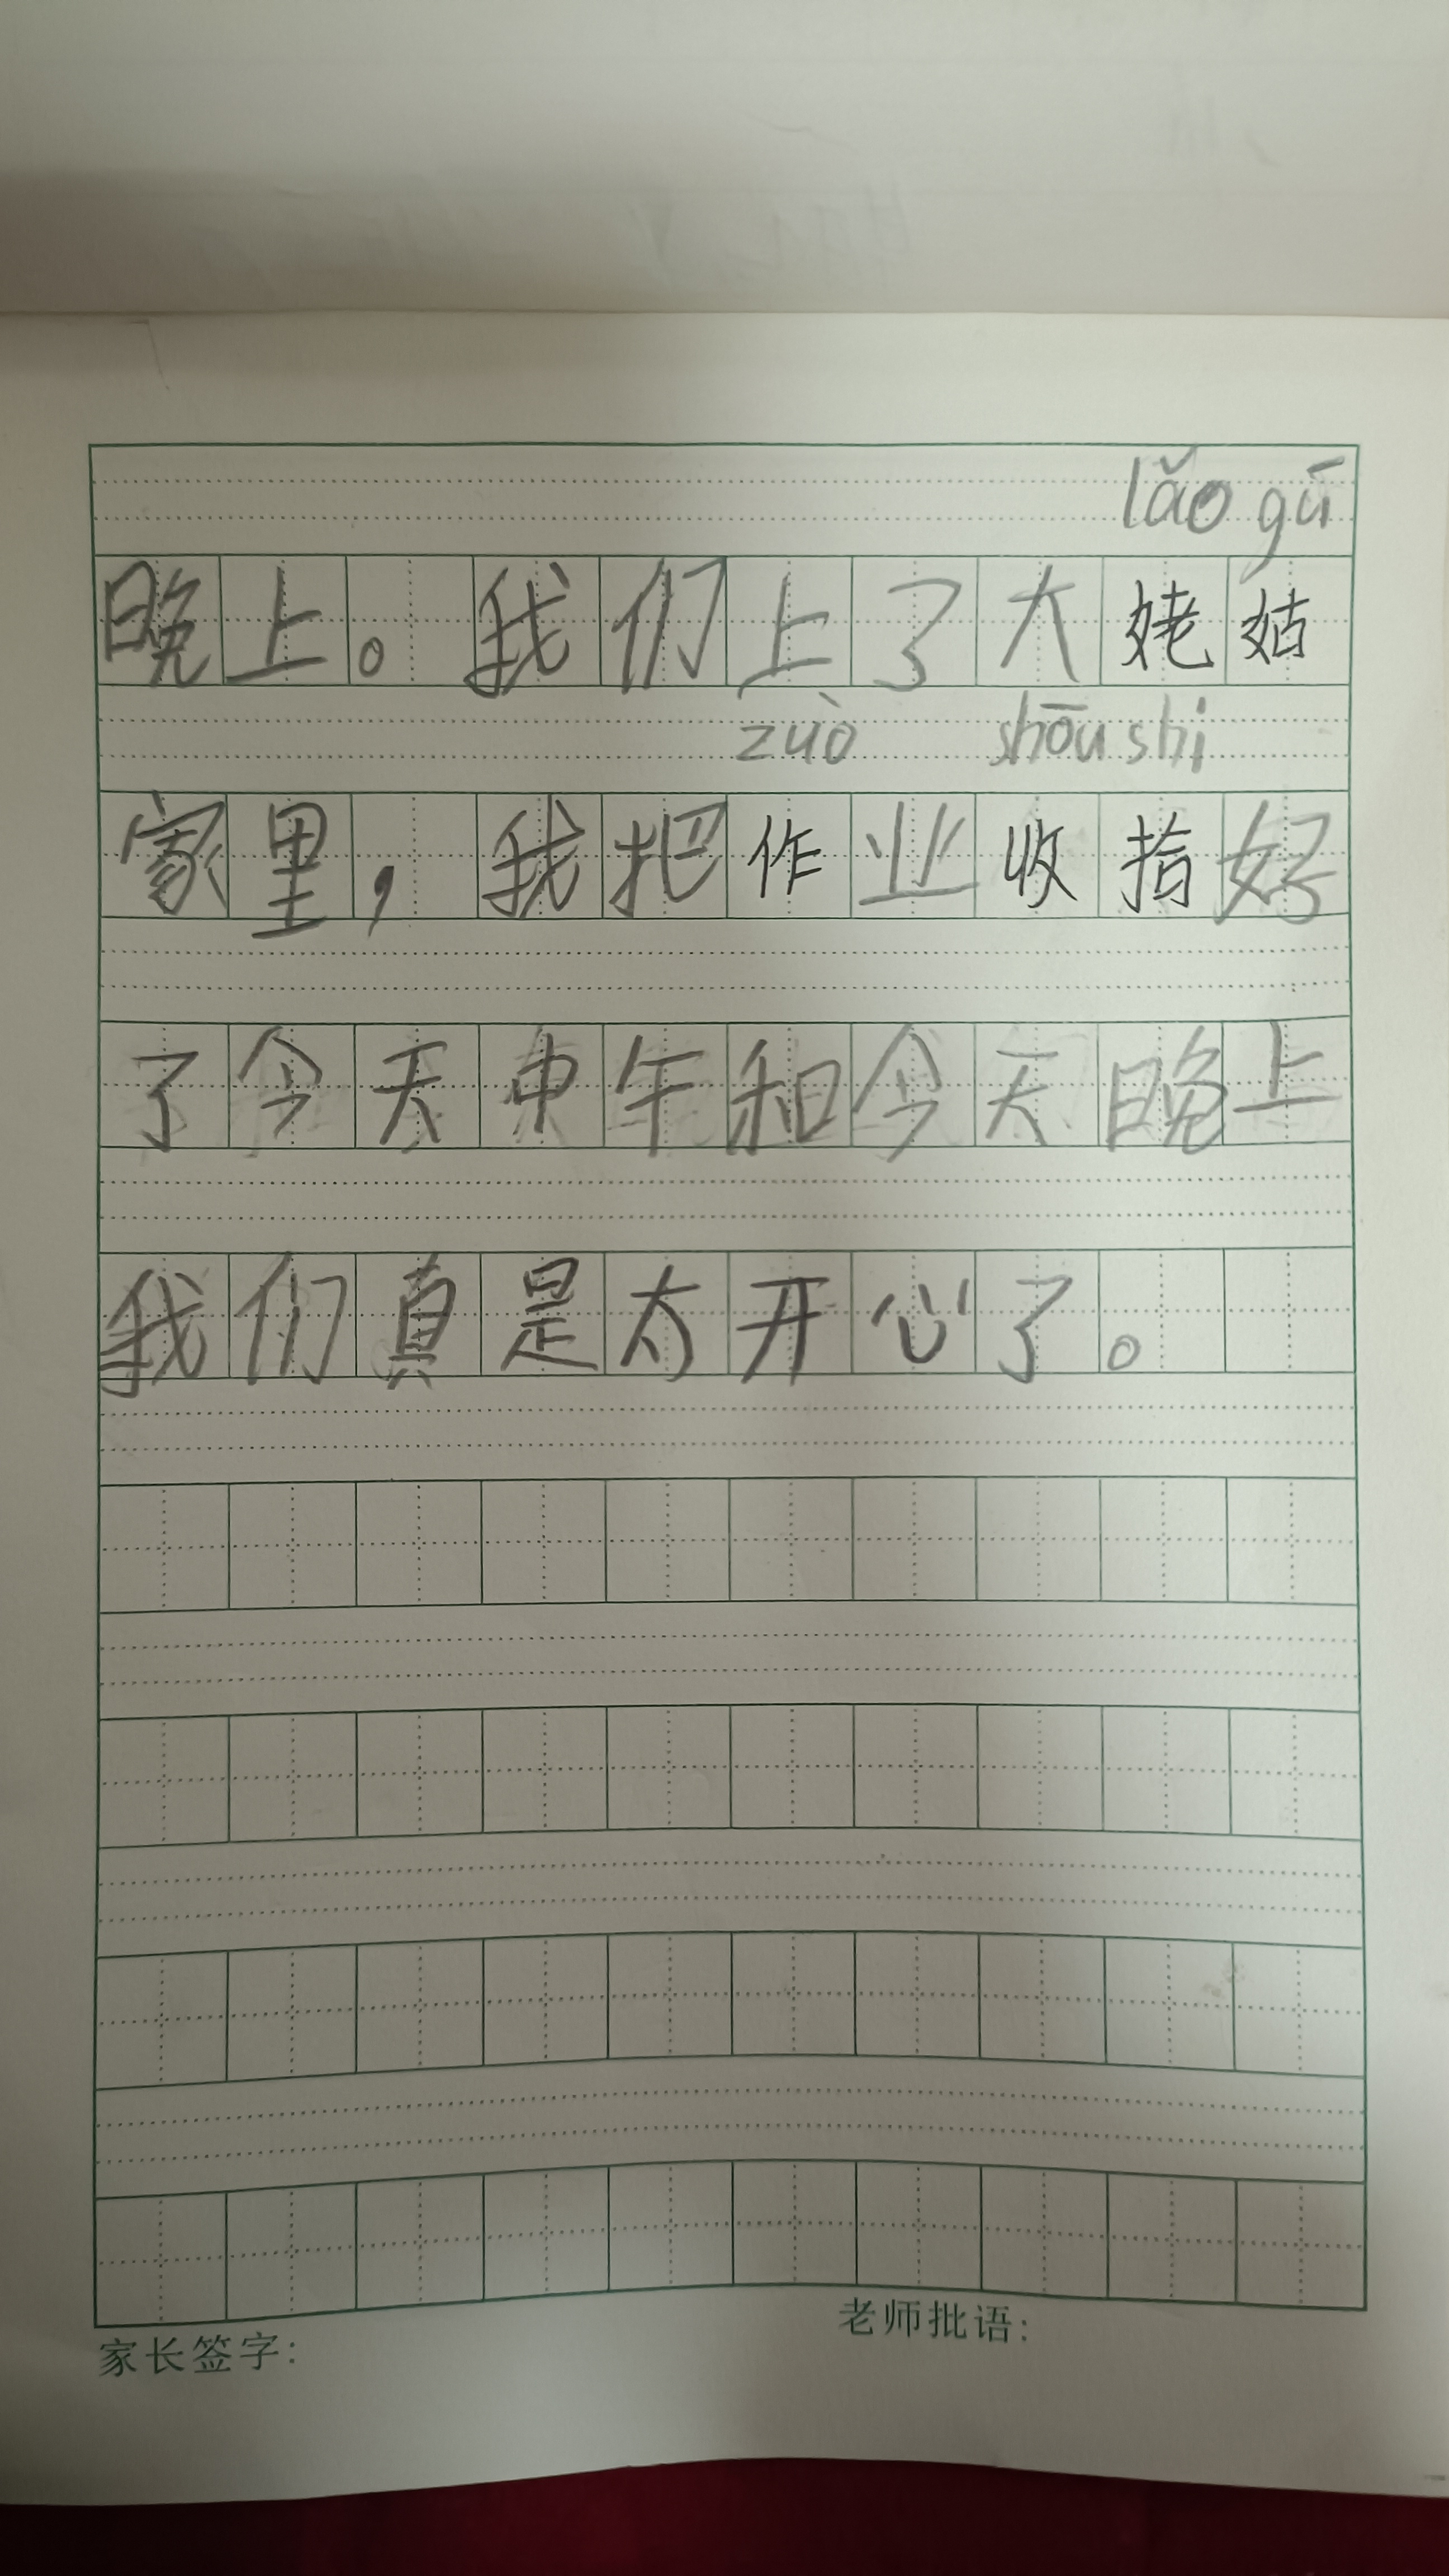 lǎo gū
晚上。我们上了大姥姑
zuò shōu shi
家里，我把作业收拾好
了今天中午和今天晚上
我们真是太开心了。
家长签字：
老师批语：